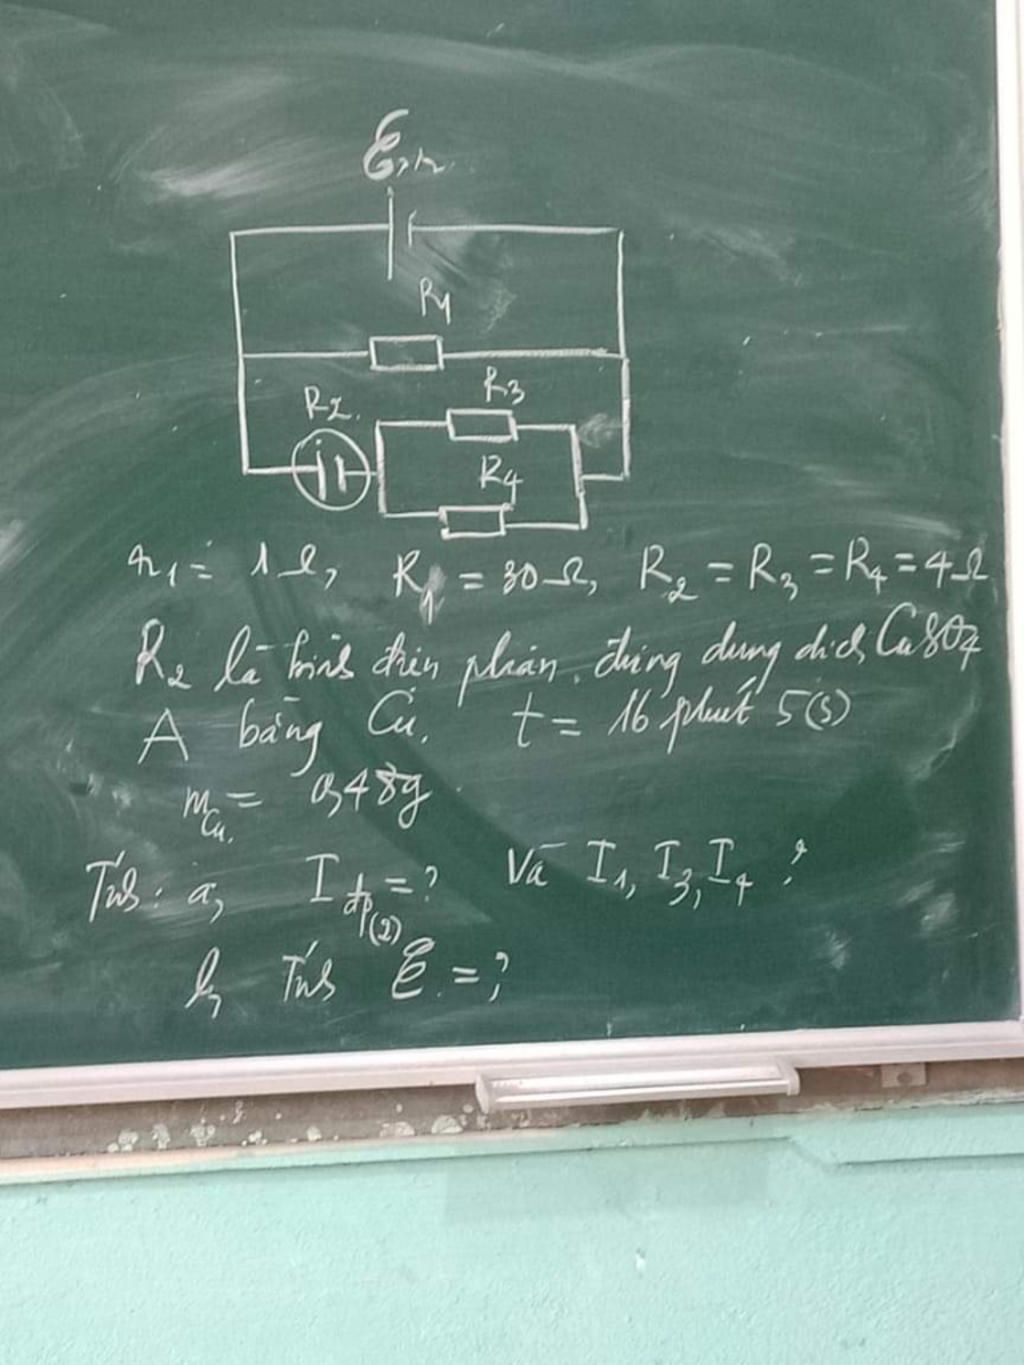 ℰ, r
R1
R3
R2
R4
r1 = 1Ω, R1 = 30Ω, R2 = R3 = R4 = 4Ω
R2 là bình điện phân, đựng dung dịch CuSO4
A bằng Cu. t = 16 phút 5(s)
mCu = 0,48g
Tính: a, Iđp(2) = ? Và I1, I3, I4 ?
b, Tính ℰ = ?